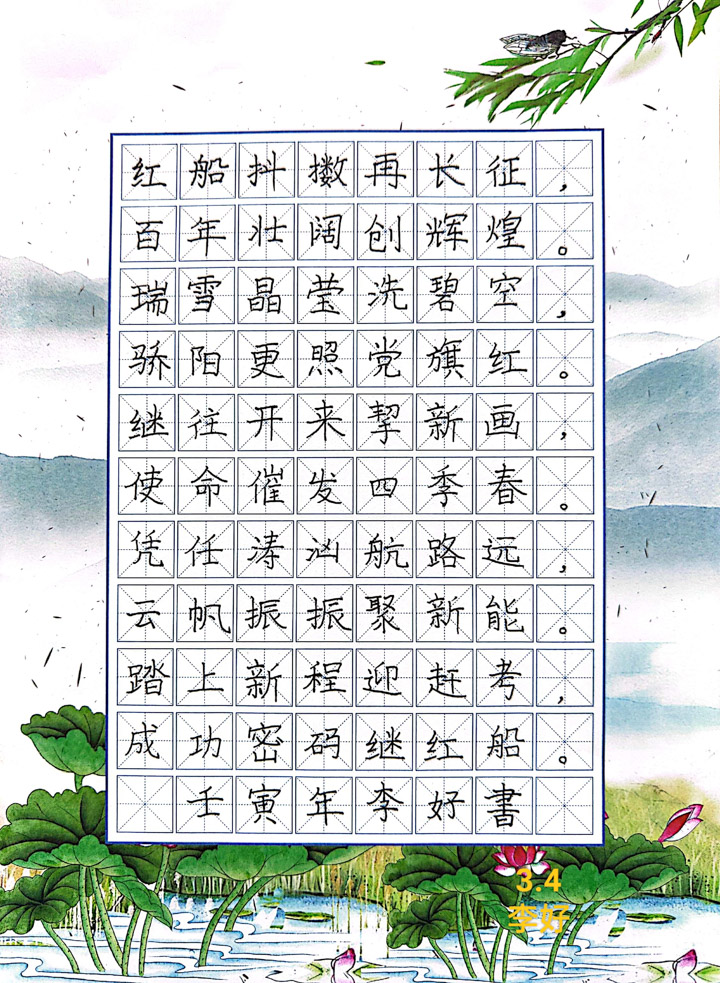 红船抖擞再长征，
百年壮阔创辉煌。
瑞雪晶莹洗碧空，
骄阳更照党旗红。
继往开来挈新画，
使命催发四季春。
凭任涛汹航路远，
云帆振振聚新能。
踏上新程迎赶考，
成功密码继红船。
壬寅年李好書
3.4
李好